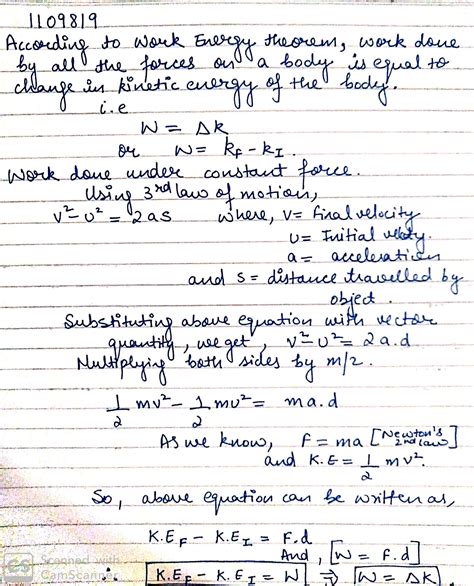 1109819
According to Work Energy theorem, work done
by all the forces on a body is equal to
change in kinetic energy of the body.
i.e
W = ΔK
or W = KF - KI.
Work done under constant force.
Using 3rd law of motion,
v² - u² = 2as where, v = final velocity
u = Initial velocity.
a = acceleration
and s = distance travelled by
object.
Substituting above equation with vector
quantity, we get, v² - u² = 2a.d
Multiplying both sides by m/2.
1/2 mv² - 1/2 mu² = ma.d
As we know, F = ma [Newton's 2nd law]
and K.E = 1/2 mv².
So, above equation can be written as,
K.EF - K.EI = F.d
And, [W = F.d]
K.EF - K.EI = W ⇒ W = ΔK
Scanned with
CamScanner